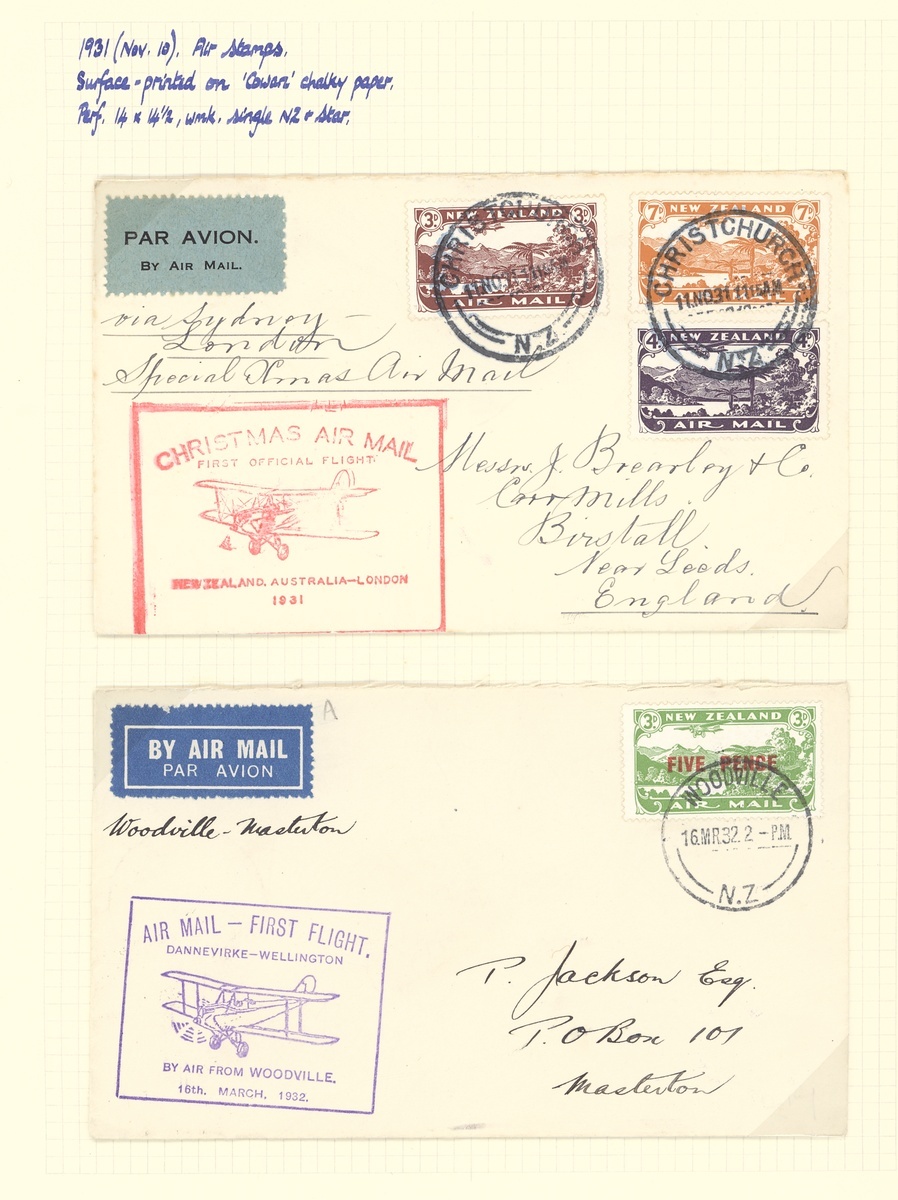 1931 (Nov. 10). Air Stamps.
Surface-printed on 'Cowan' chalky paper.
Perf. 14 x 14½, wmk. single NZ & Star.
PAR AVION.
BY AIR MAIL.
3D NEW ZEALAND 3D
AIR MAIL
7D NEW ZEALAND 7D
AIR MAIL
4D NEW ZEALAND 4D
AIR MAIL
CHRISTCHURCH
11NO31
N.Z.
CHRISTCHURCH
11NO31 11 15AM
N.Z.
via Sydney -
London
Special Xmas Air Mail
CHRISTMAS AIR MAIL
FIRST OFFICIAL FLIGHT
NEW ZEALAND. AUSTRALIA—LONDON
1931
Messrs. J. Brearley & Co.
Carr Mills.
Birstall
Near Leeds.
England.
BY AIR MAIL
PAR AVION
A
3D NEW ZEALAND 3D
FIVE PENCE
AIR MAIL
WOODVILLE
16MR32 2 - P.M.
N.Z
Woodville - Masterton
AIR MAIL — FIRST FLIGHT.
DANNEVIRKE—WELLINGTON
BY AIR FROM WOODVILLE.
16th. MARCH, 1932.
P. Jackson Esq.
P.O Box 101
Masterton